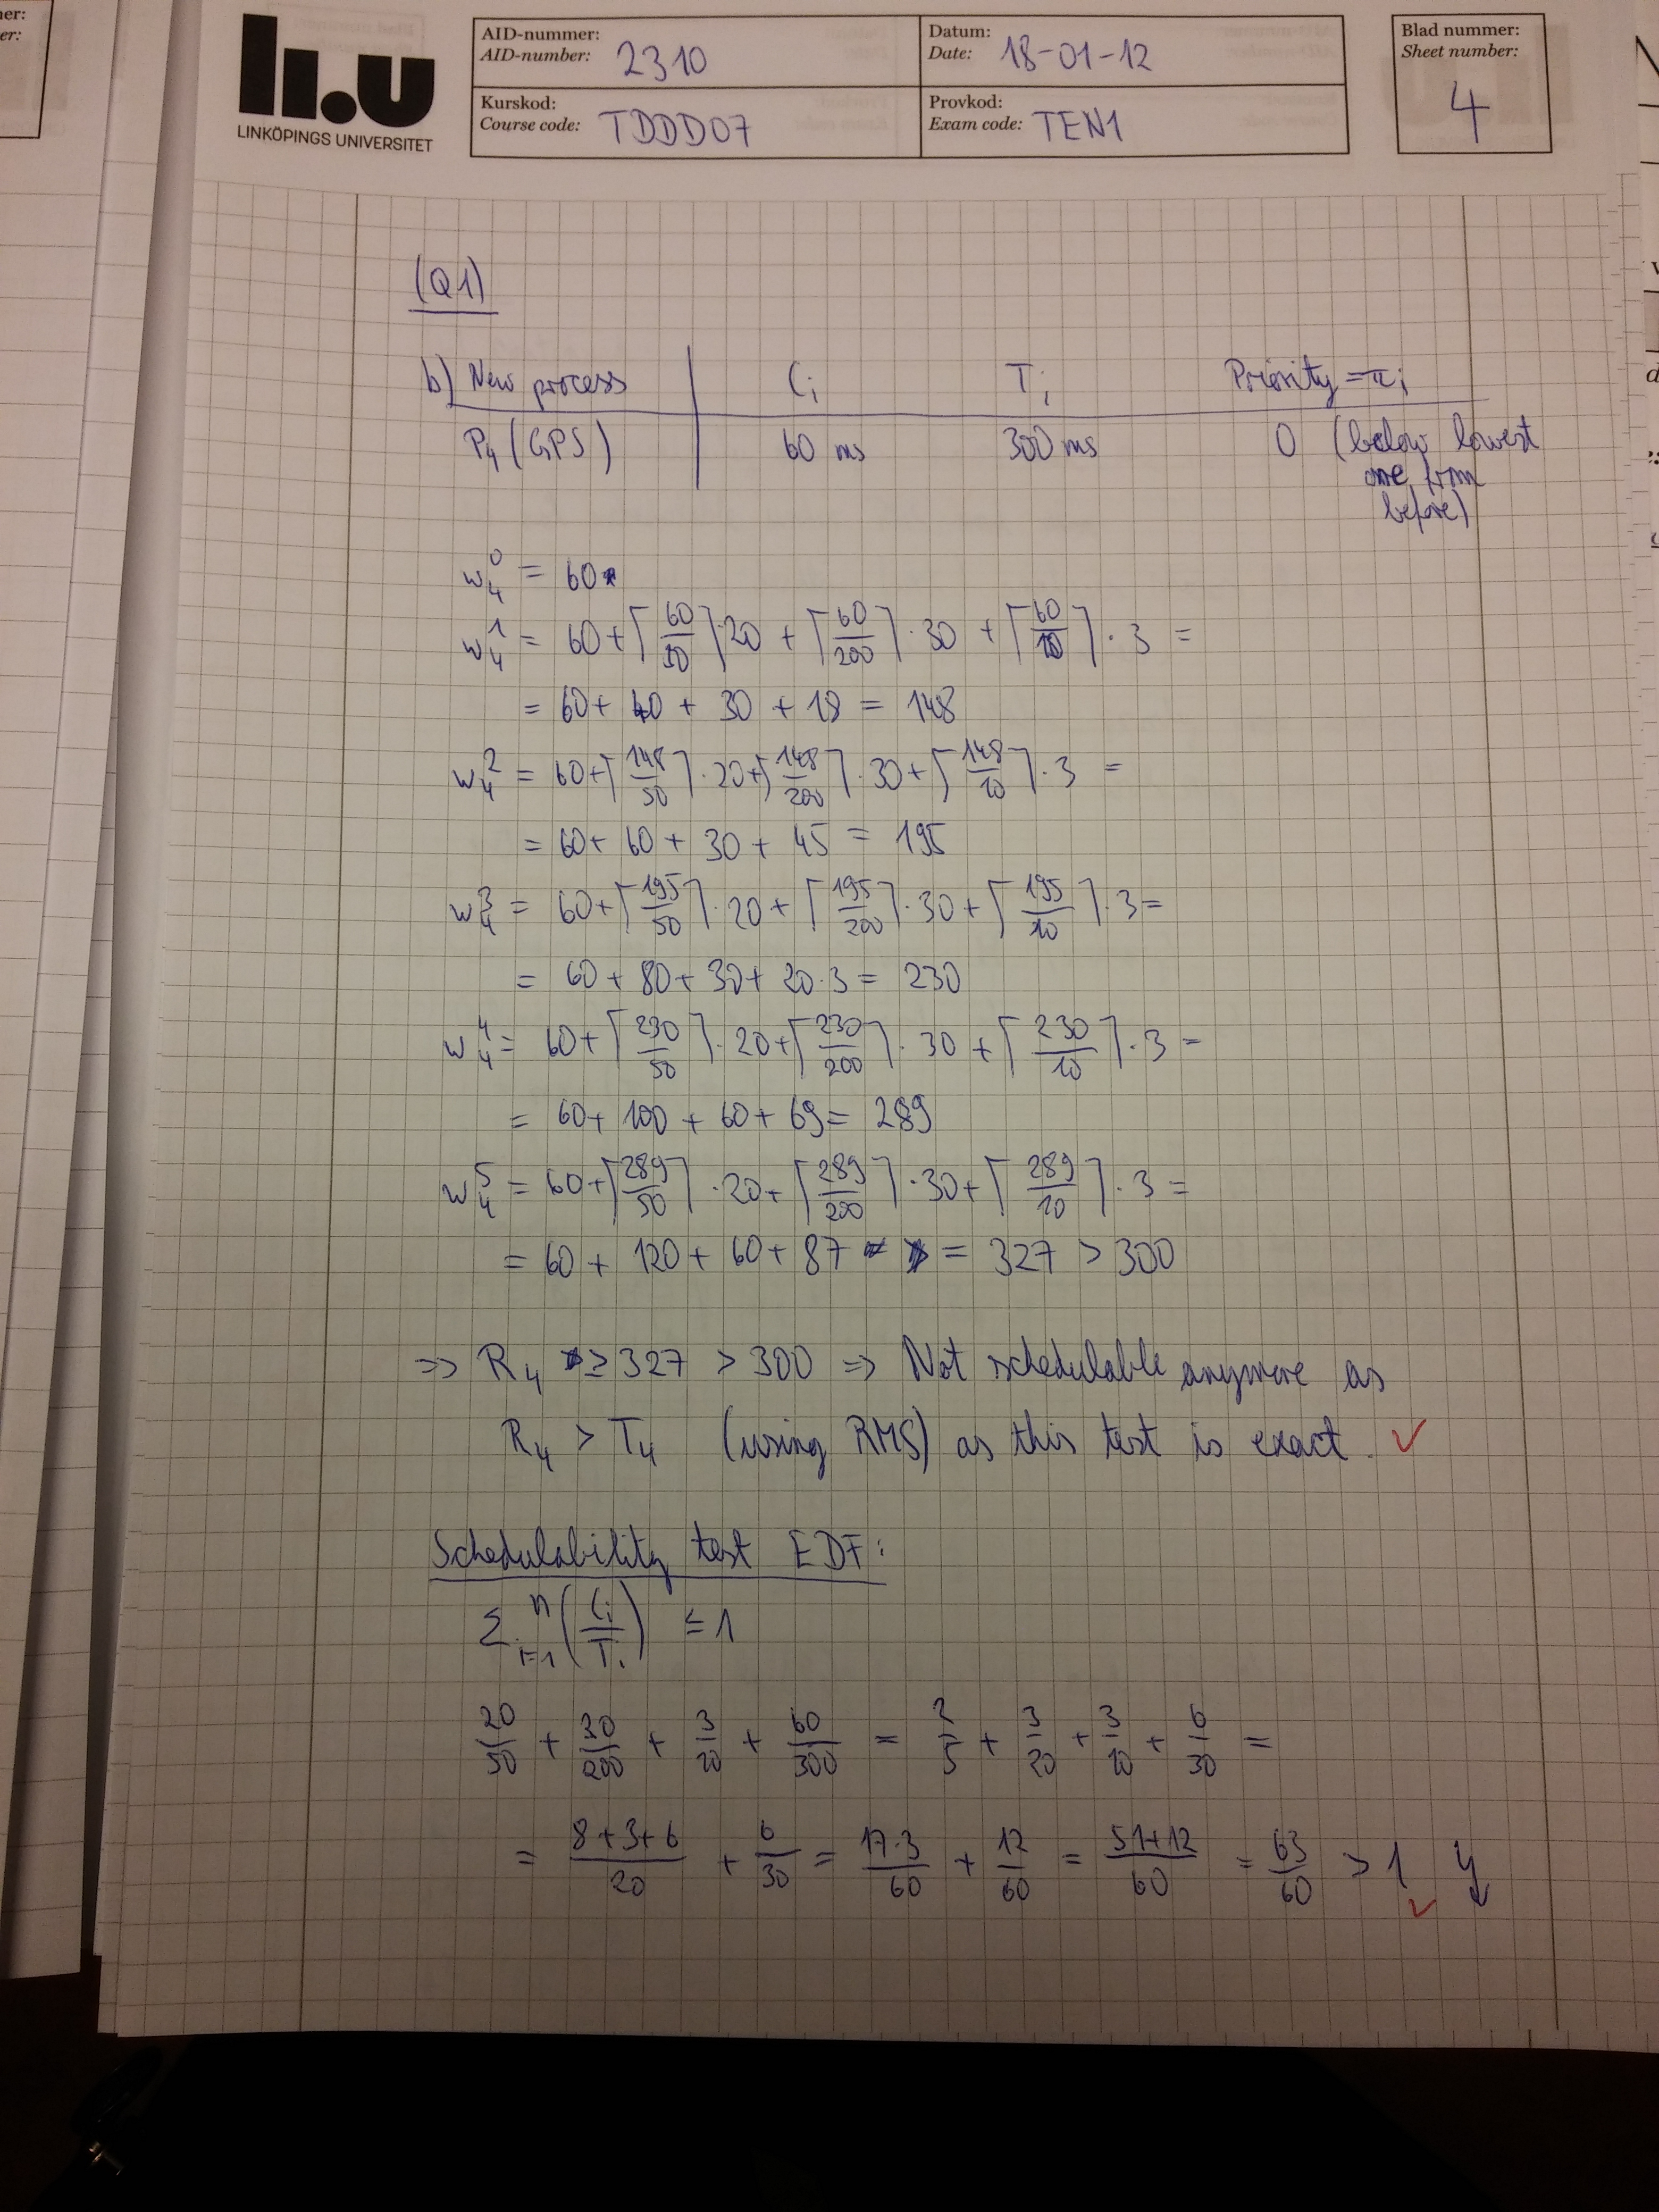 er:
er:
li.u
LINKÖPINGS UNIVERSITET
AID-nummer:
AID-number: 2310
Datum:
Date: 18-01-12
Blad nummer:
Sheet number:
4
Kurskod:
Course code: TDDD07
Provkod:
Exam code: TEN1
(Q1)
b) New process | C_i T_i Priority = π_i
P_4 (GPS) | 60 ms 300 ms 0 (below lowest
one from
before)
w_4^0 = 60
w_4^1 = 60 + ⌈60/50⌉·20 + ⌈60/200⌉·30 + ⌈60/10⌉·3 =
= 60 + 40 + 30 + 18 = 148
w_4^2 = 60 + ⌈148/50⌉·20 + ⌈148/200⌉·30 + ⌈148/10⌉·3 =
= 60 + 60 + 30 + 45 = 195
w_4^3 = 60 + ⌈195/50⌉·20 + ⌈195/200⌉·30 + ⌈195/10⌉·3 =
= 60 + 80 + 30 + 20·3 = 230
w_4^4 = 60 + ⌈230/50⌉·20 + ⌈230/200⌉·30 + ⌈230/10⌉·3 =
= 60 + 100 + 60 + 69 = 289
w_4^5 = 60 + ⌈289/50⌉·20 + ⌈289/200⌉·30 + ⌈289/10⌉·3 =
= 60 + 120 + 60 + 87 = 327 > 300
=> R_4 ≥ 327 > 300 => Not schedulable anymore as
R_4 > T_4 (using RMS) as this test is exact. ✓
Schedulability test EDF:
Σ_{i=1}^n (C_i/T_i) ≤ 1
20/50 + 30/200 + 3/10 + 60/300 = 2/5 + 3/20 + 3/10 + 6/30 =
= (8+3+6)/20 + 6/30 = (17·3)/60 + 12/60 = (51+12)/60 = 63/60 > 1 ↯
✓